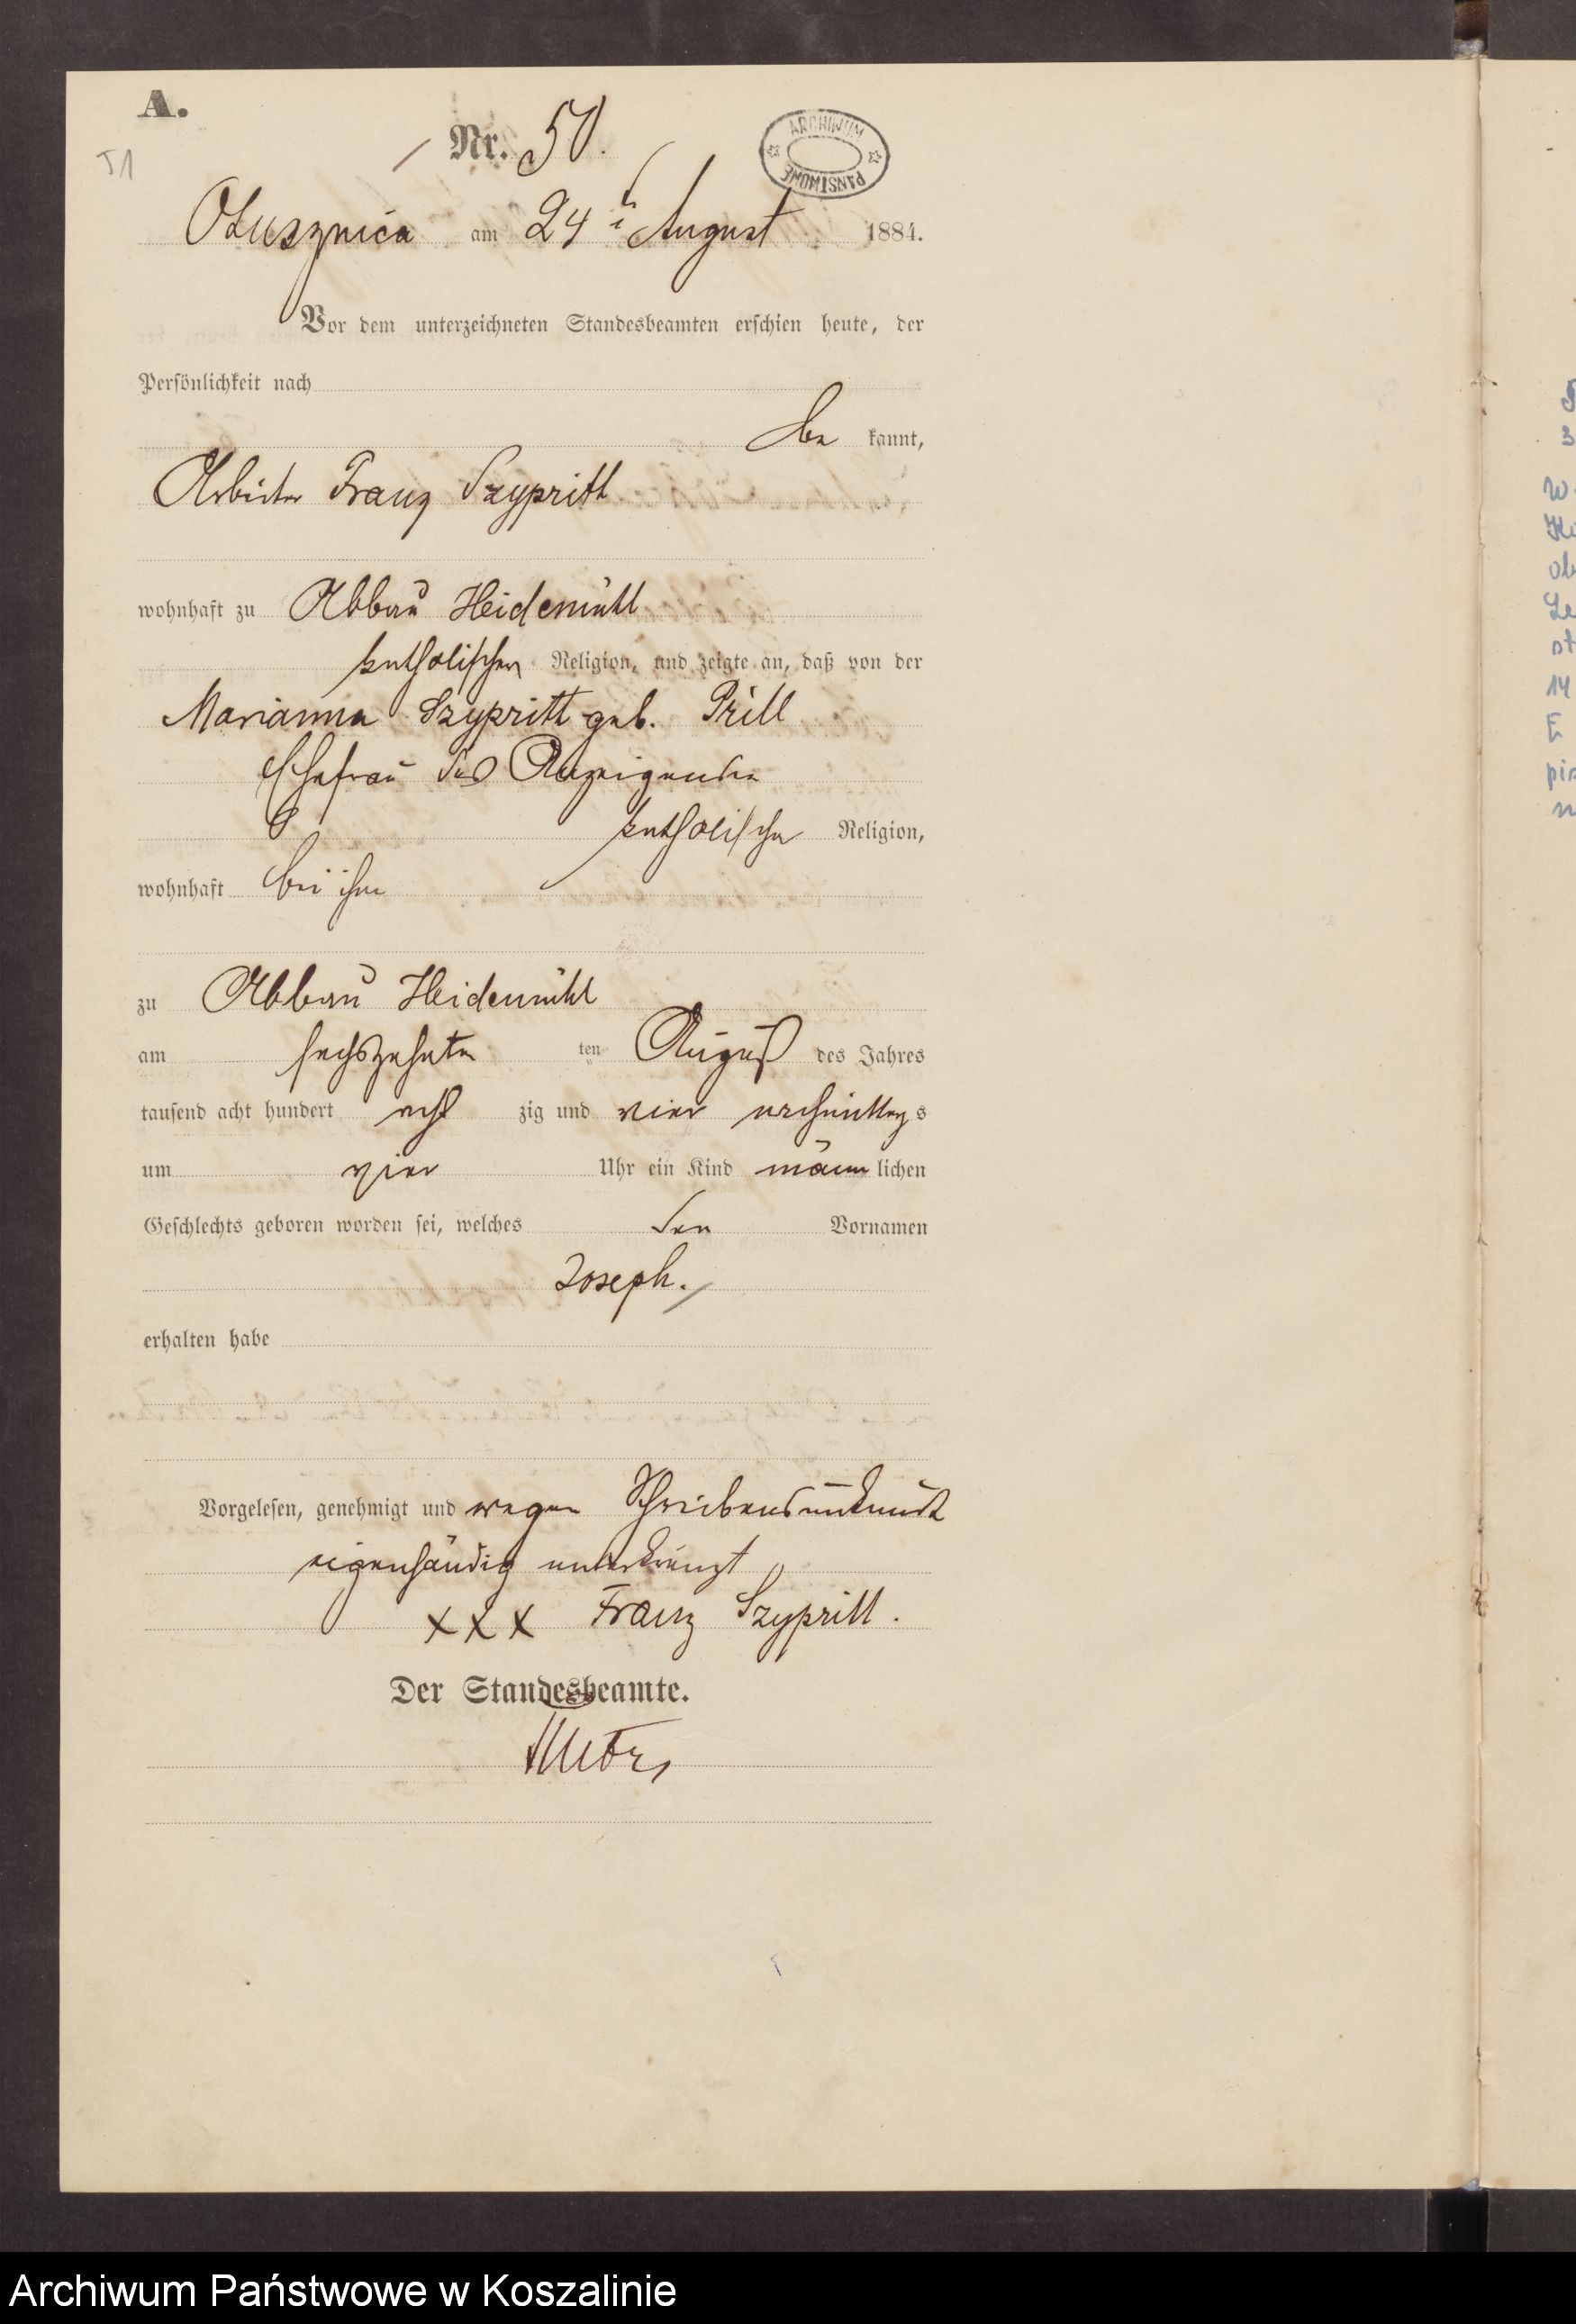 A.
51
Nr. 50.
ARCHIWUM PAŃSTWOWE
Osusznica am 24t August 1884.
Vor dem unterzeichneten Standesbeamten erschien heute, der
Persönlichkeit nach
be kannt,
Arbeiter Franz Szypritt
wohnhaft zu Abbau Heidemühl
katholischen Religion, und zeigte an, daß von der
Marianna Szypritt geb. Prill
Ehefrau des Anzeigenden
katholischer Religion,
wohnhaft bei ihm
zu Abbau Heidemühl
am sechszehnten ten August des Jahres
tausend acht hundert acht zig und vier nachmittags
um vier Uhr ein Kind männ lichen
Geschlechts geboren worden sei, welches den Vornamen
Joseph.
erhalten habe
Vorgelesen, genehmigt und wegen Schreibensunkunde
eigenhändig unterkreuzt
XXX Franz Szypritt.
Der Standesbeamte.
Archiwum Państwowe w Koszalinie